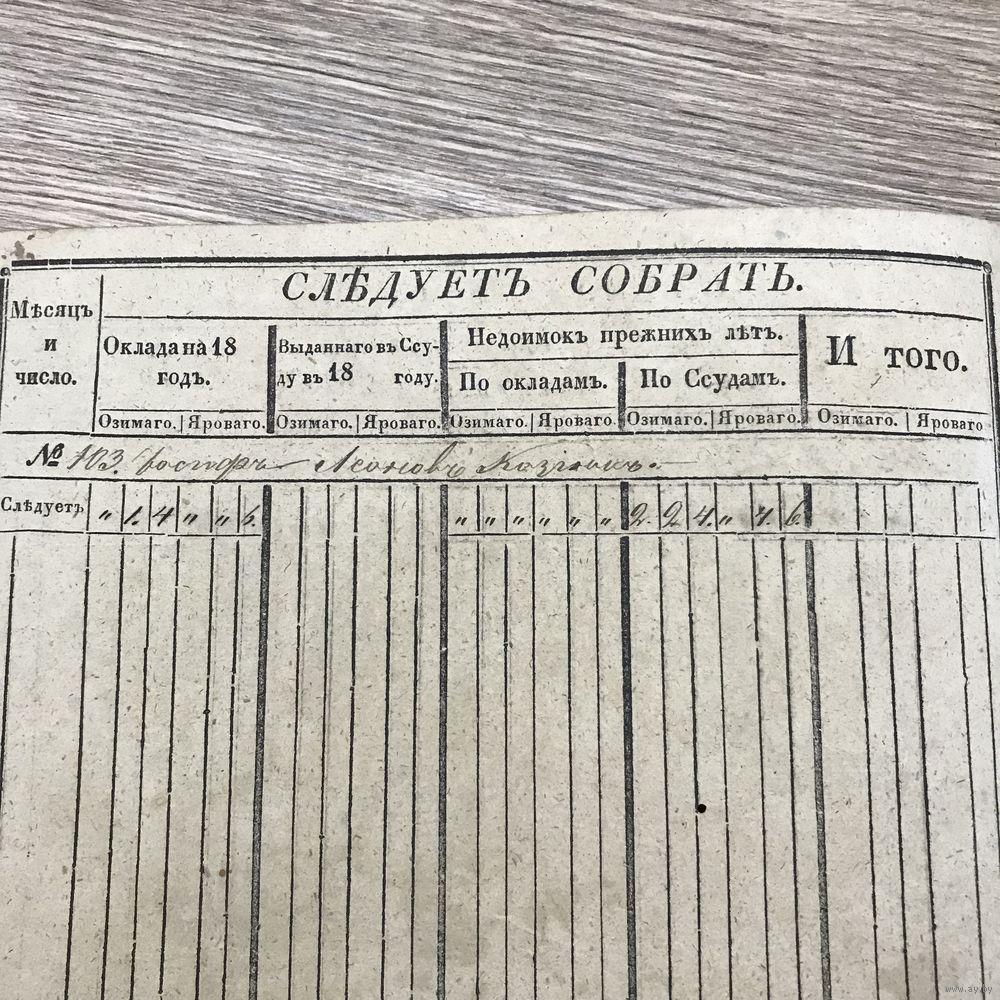 СЛѢДУЕТЪ СОБРАТЬ.
Мѣсяцъ
и
число.
Оклада на 18
годъ.
Выданнаго въ Ссу-
ду въ 18 году.
Недоимокъ прежнихъ лѣтъ.
По окладамъ. По Ссудамъ.
И того.
Озимаго. Яроваго. Озимаго. Яроваго. Озимаго. Яроваго. Озимаго. Яроваго. Озимаго. Яроваго
№ 103.
Слѣдуетъ „ 1. 4 „ „ 6. „ „ „ „ „ „ 2. 2 4. „ 7. 6.
www.ay.by